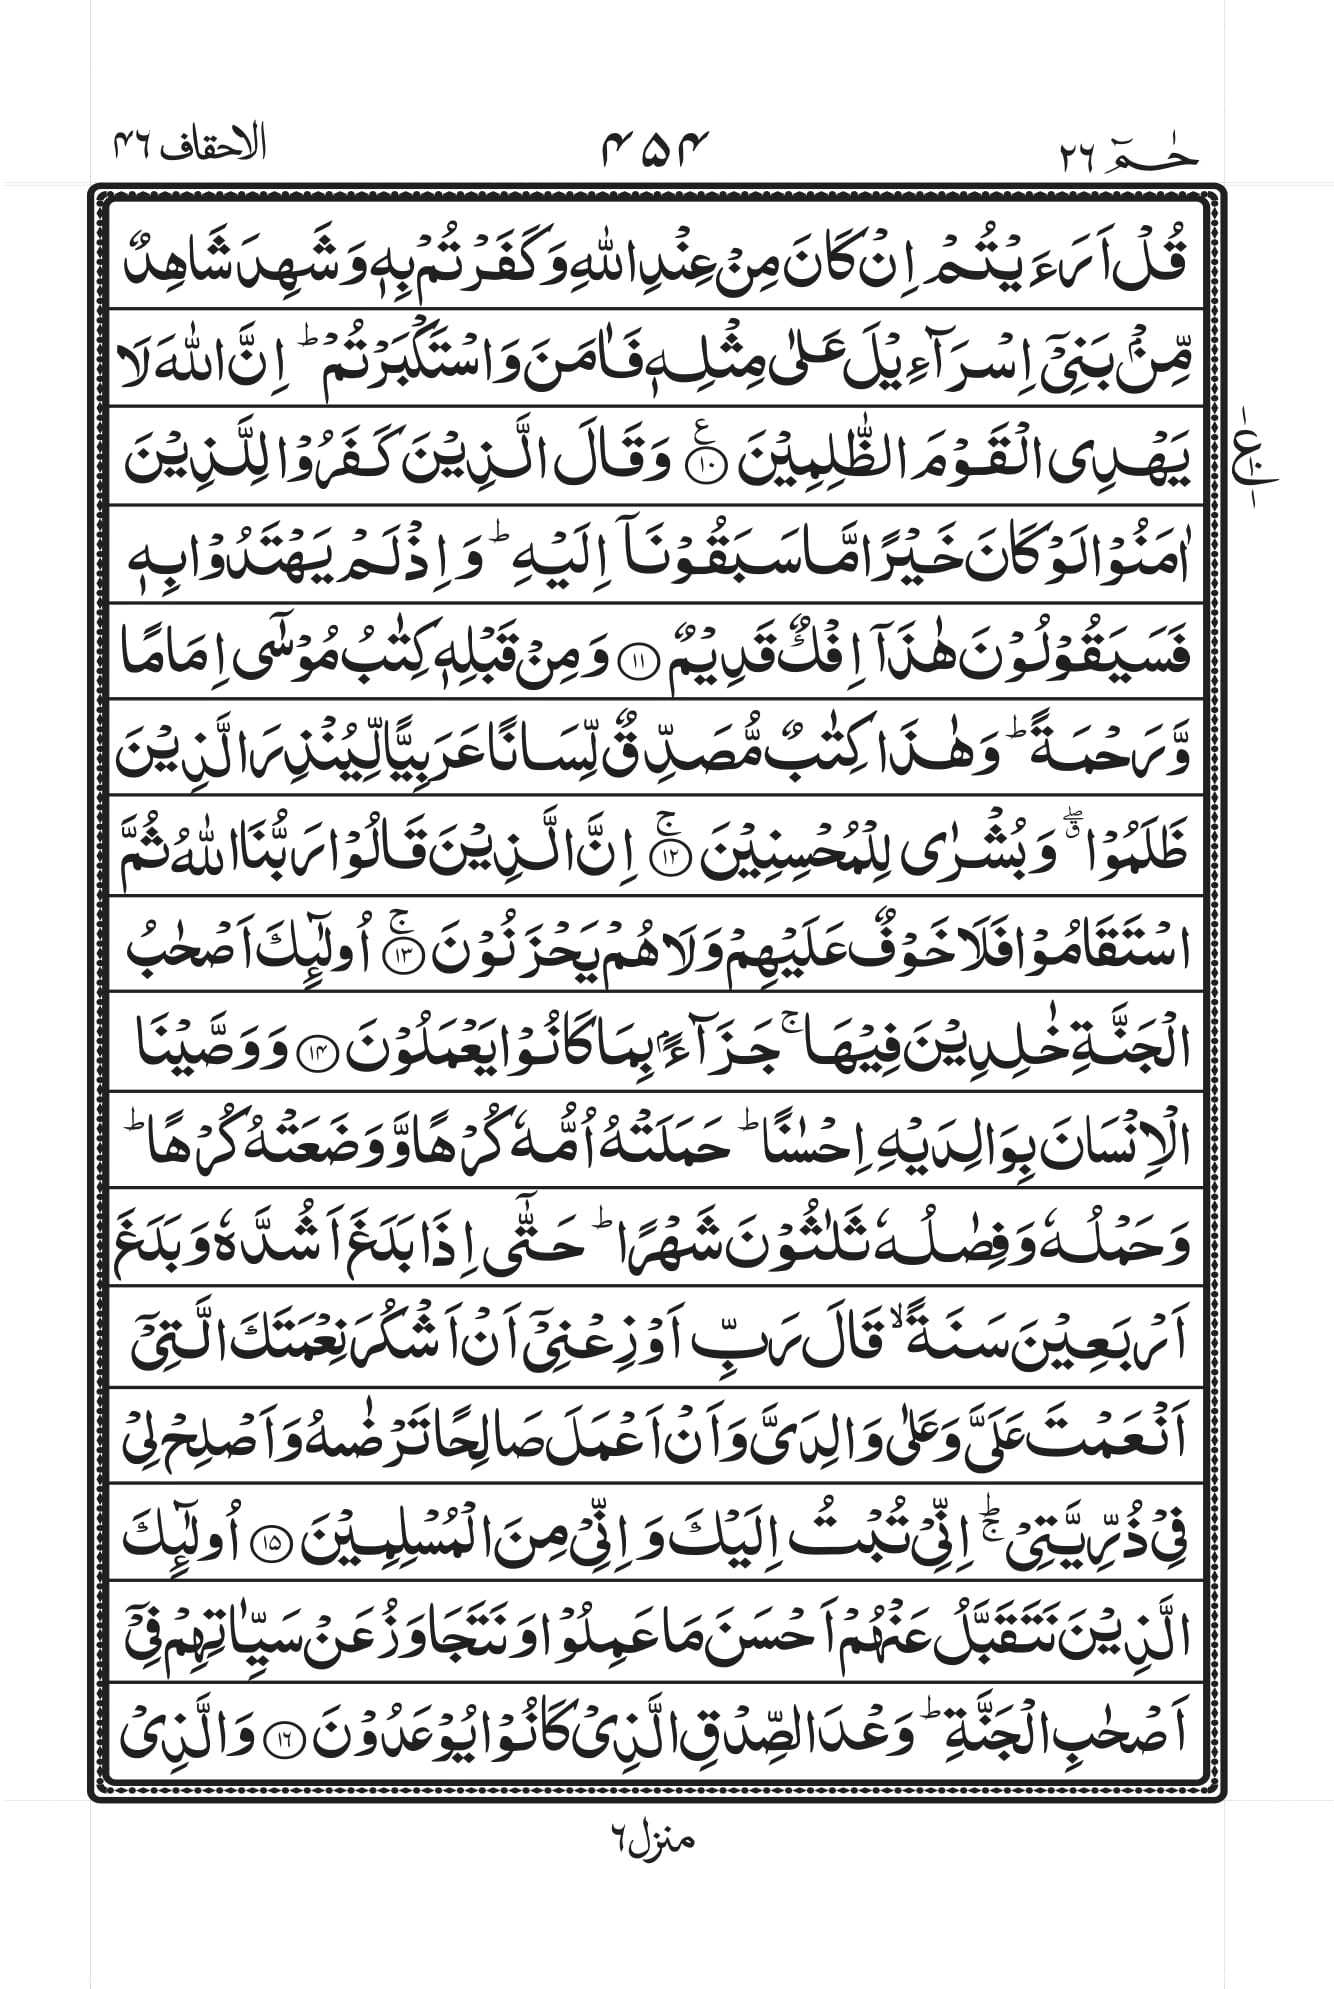 حٰمٓ ٢٦ ۴۵۴ الاحقاف ۴٦
قُلْ اَرَءَیْتُمْ اِنْ كَانَ مِنْ عِنْدِ اللّٰهِ وَ كَفَرْتُمْ بِهٖ وَ شَهِدَ شَاهِدٌ
مِّنْۢ بَنِیْۤ اِسْرَآءِیْلَ عَلٰی مِثْلِهٖ فَاٰمَنَ وَ اسْتَكْبَرْتُمْ ؕ اِنَّ اللّٰهَ لَا
یَهْدِی الْقَوْمَ الظّٰلِمِیْنَ ۧ ﴿۱۰﴾ وَ قَالَ الَّذِیْنَ كَفَرُوْا لِلَّذِیْنَ
ع ۱۰ ۱
اٰمَنُوْا لَوْ كَانَ خَیْرًا مَّا سَبَقُوْنَاۤ اِلَیْهِ ؕ وَ اِذْ لَمْ یَهْتَدُوْا بِهٖ
فَسَیَقُوْلُوْنَ هٰذَاۤ اِفْكٌ قَدِیْمٌ ﴿۱۱﴾ وَ مِنْ قَبْلِهٖ كِتٰبُ مُوْسٰۤی اِمَامًا
وَّ رَحْمَةً ؕ وَ هٰذَا كِتٰبٌ مُّصَدِّقٌ لِّسَانًا عَرَبِیًّا لِّیُنْذِرَ الَّذِیْنَ
ظَلَمُوْا ۖۗ وَ بُشْرٰی لِلْمُحْسِنِیْنَ ۚ ﴿۱۲﴾ اِنَّ الَّذِیْنَ قَالُوْا رَبُّنَا اللّٰهُ ثُمَّ
اسْتَقَامُوْا فَلَا خَوْفٌ عَلَیْهِمْ وَ لَا هُمْ یَحْزَنُوْنَ ۚ ﴿۱۳﴾ اُولٰٓئِكَ اَصْحٰبُ
الْجَنَّةِ خٰلِدِیْنَ فِیْهَا ۚ جَزَآءًۢ بِمَا كَانُوْا یَعْمَلُوْنَ ﴿۱۴﴾ وَ وَصَّیْنَا
الْاِنْسَانَ بِوَالِدَیْهِ اِحْسٰنًا ؕ حَمَلَتْهُ اُمُّهٗ كُرْهًا وَّ وَضَعَتْهُ كُرْهًا ؕ
وَ حَمْلُهٗ وَ فِصٰلُهٗ ثَلٰثُوْنَ شَهْرًا ؕ حَتّٰۤی اِذَا بَلَغَ اَشُدَّهٗ وَ بَلَغَ
اَرْبَعِیْنَ سَنَةً ۙ قَالَ رَبِّ اَوْزِعْنِیْۤ اَنْ اَشْكُرَ نِعْمَتَكَ الَّتِیْۤ
اَنْعَمْتَ عَلَیَّ وَ عَلٰی وَالِدَیَّ وَ اَنْ اَعْمَلَ صَالِحًا تَرْضٰىهُ وَ اَصْلِحْ لِیْ
فِیْ ذُرِّیَّتِیْ ؕۚ اِنِّیْ تُبْتُ اِلَیْكَ وَ اِنِّیْ مِنَ الْمُسْلِمِیْنَ ﴿۱۵﴾ اُولٰٓئِكَ
الَّذِیْنَ نَتَقَبَّلُ عَنْهُمْ اَحْسَنَ مَا عَمِلُوْا وَ نَتَجَاوَزُ عَنْ سَیِّاٰتِهِمْ فِیْۤ
اَصْحٰبِ الْجَنَّةِ ؕ وَعْدَ الصِّدْقِ الَّذِیْ كَانُوْا یُوْعَدُوْنَ ﴿۱۶﴾ وَ الَّذِیْ
منزل ٦